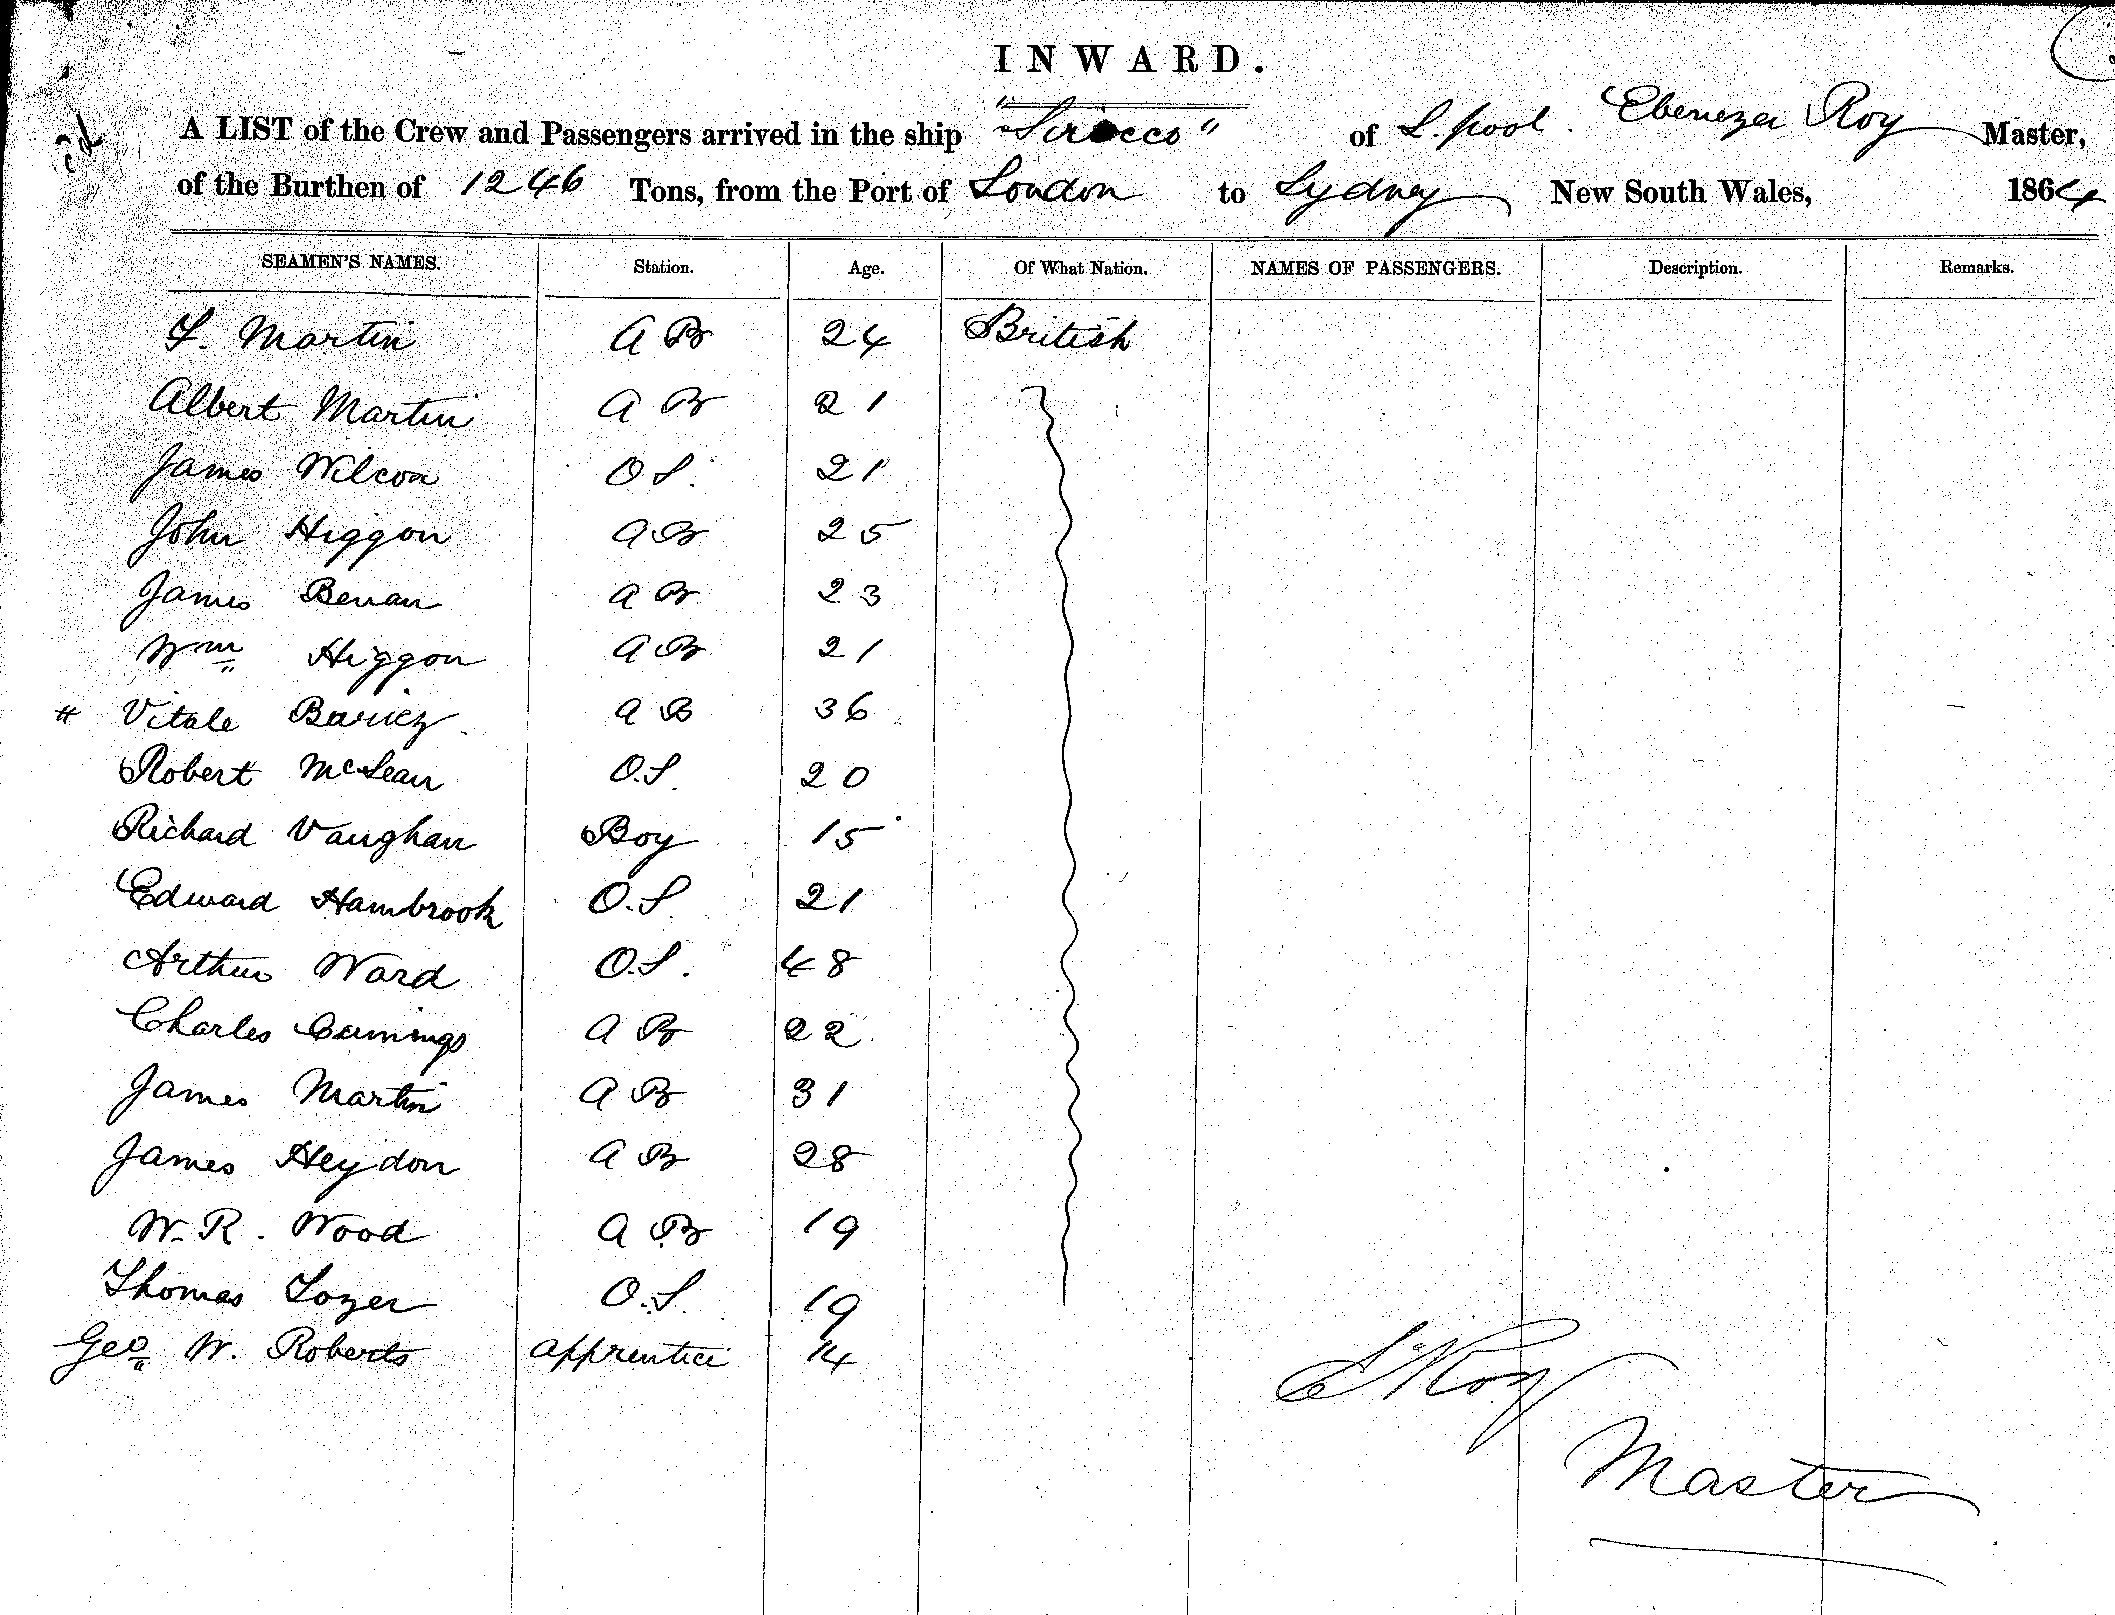 INWARD.
A LIST of the Crew and Passengers arrived in the ship "Sirocco" of L.pool. Ebenezer Roy Master,
of the Burthen of 1246 Tons, from the Port of London to Sydney New South Wales, 1864
SEAMEN'S NAMES. Station. Age. Of What Nation. NAMES OF PASSENGERS. Description. Remarks.
T. Martin A B 24 British
Albert Martin A B 21
James Wilcox O S. 21
John Higgon A B 25
James Bevan A B 23
Wm Higgon A B 21
Vitale A B 36
Robert McLean O.S. 20
Richard Vaughan Boy 15
Edward Hambrook O.S 21
Arthur Ward O.S. 48
Charles Cumings A B 22
James Martin A B 31
James Heydon A B 28
W. R. Wood A B 19
Thomas Tozer O.S. 19
Geo W. Roberts apprentice 14
E Roy
Master